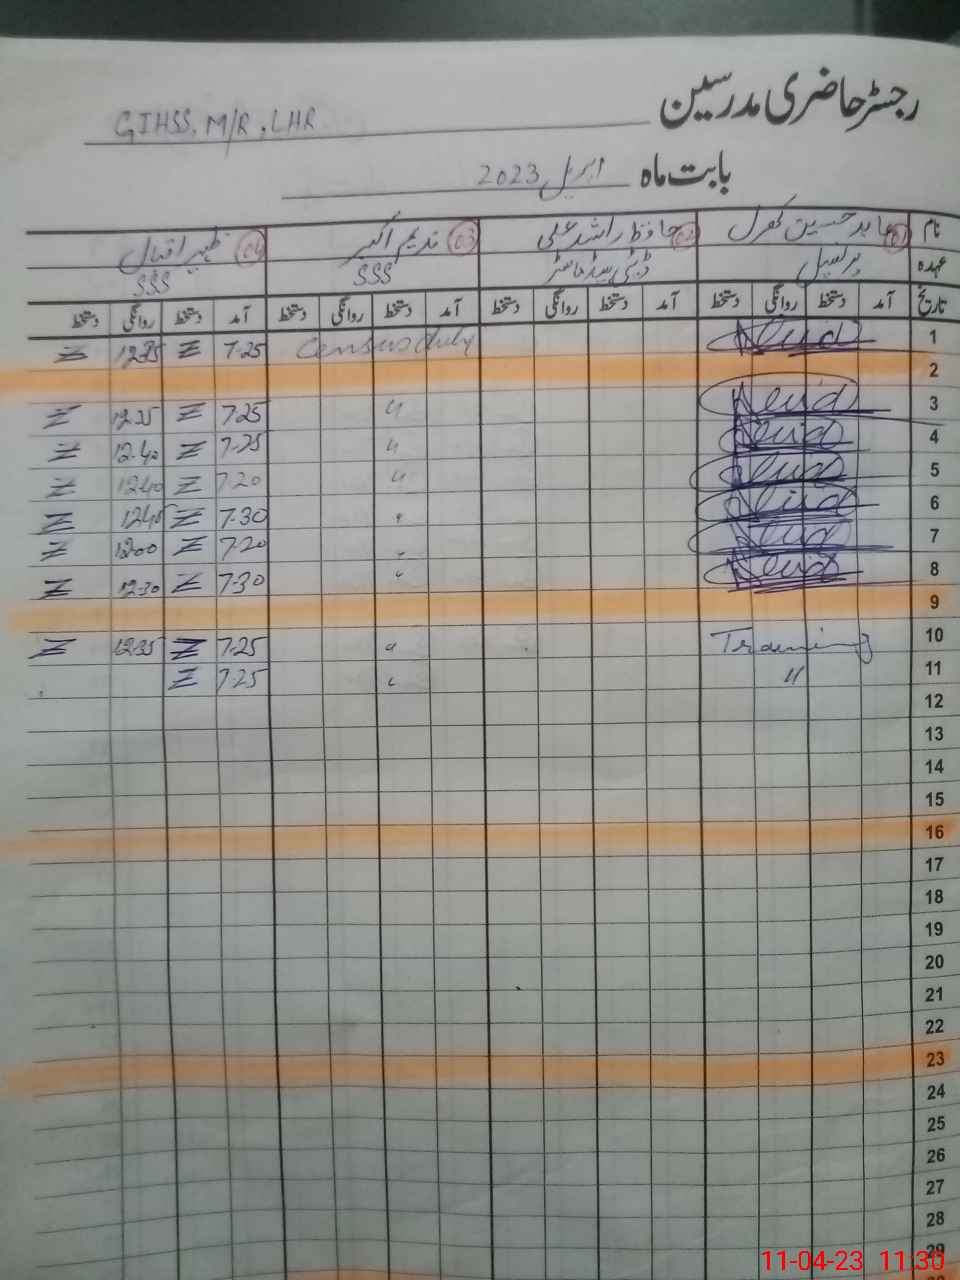 رجسٹر حاضری مدرسین GIHSS, M/R, LHR
بابت ماہ اپریل 2023
نام 01 عابد حسین کھرل 02 حافظ راشد علی 03 ندیم اکبر 04 ظہیر اقبال
عہدہ پرنسپل ڈپٹی ہیڈ ماسٹر SSS SSS
تاریخ آمد دستخط روانگی دستخط آمد دستخط روانگی دستخط آمد دستخط روانگی دستخط آمد دستخط روانگی دستخط
1 Census duty 7-25 12-35
2
3 " 7-25 12-35
4 " 7-25 12-40
5 " 7-20 1240
6 " 7-30 1245
7 " 7-20 1200
8 " 7-30 12-30
9
10 Training " 7-25 12-35
11 " " 7-25
12
13
14
15
16
17
18
19
20
21
22
23
24
25
26
27
28
29
11-04-23 11:30